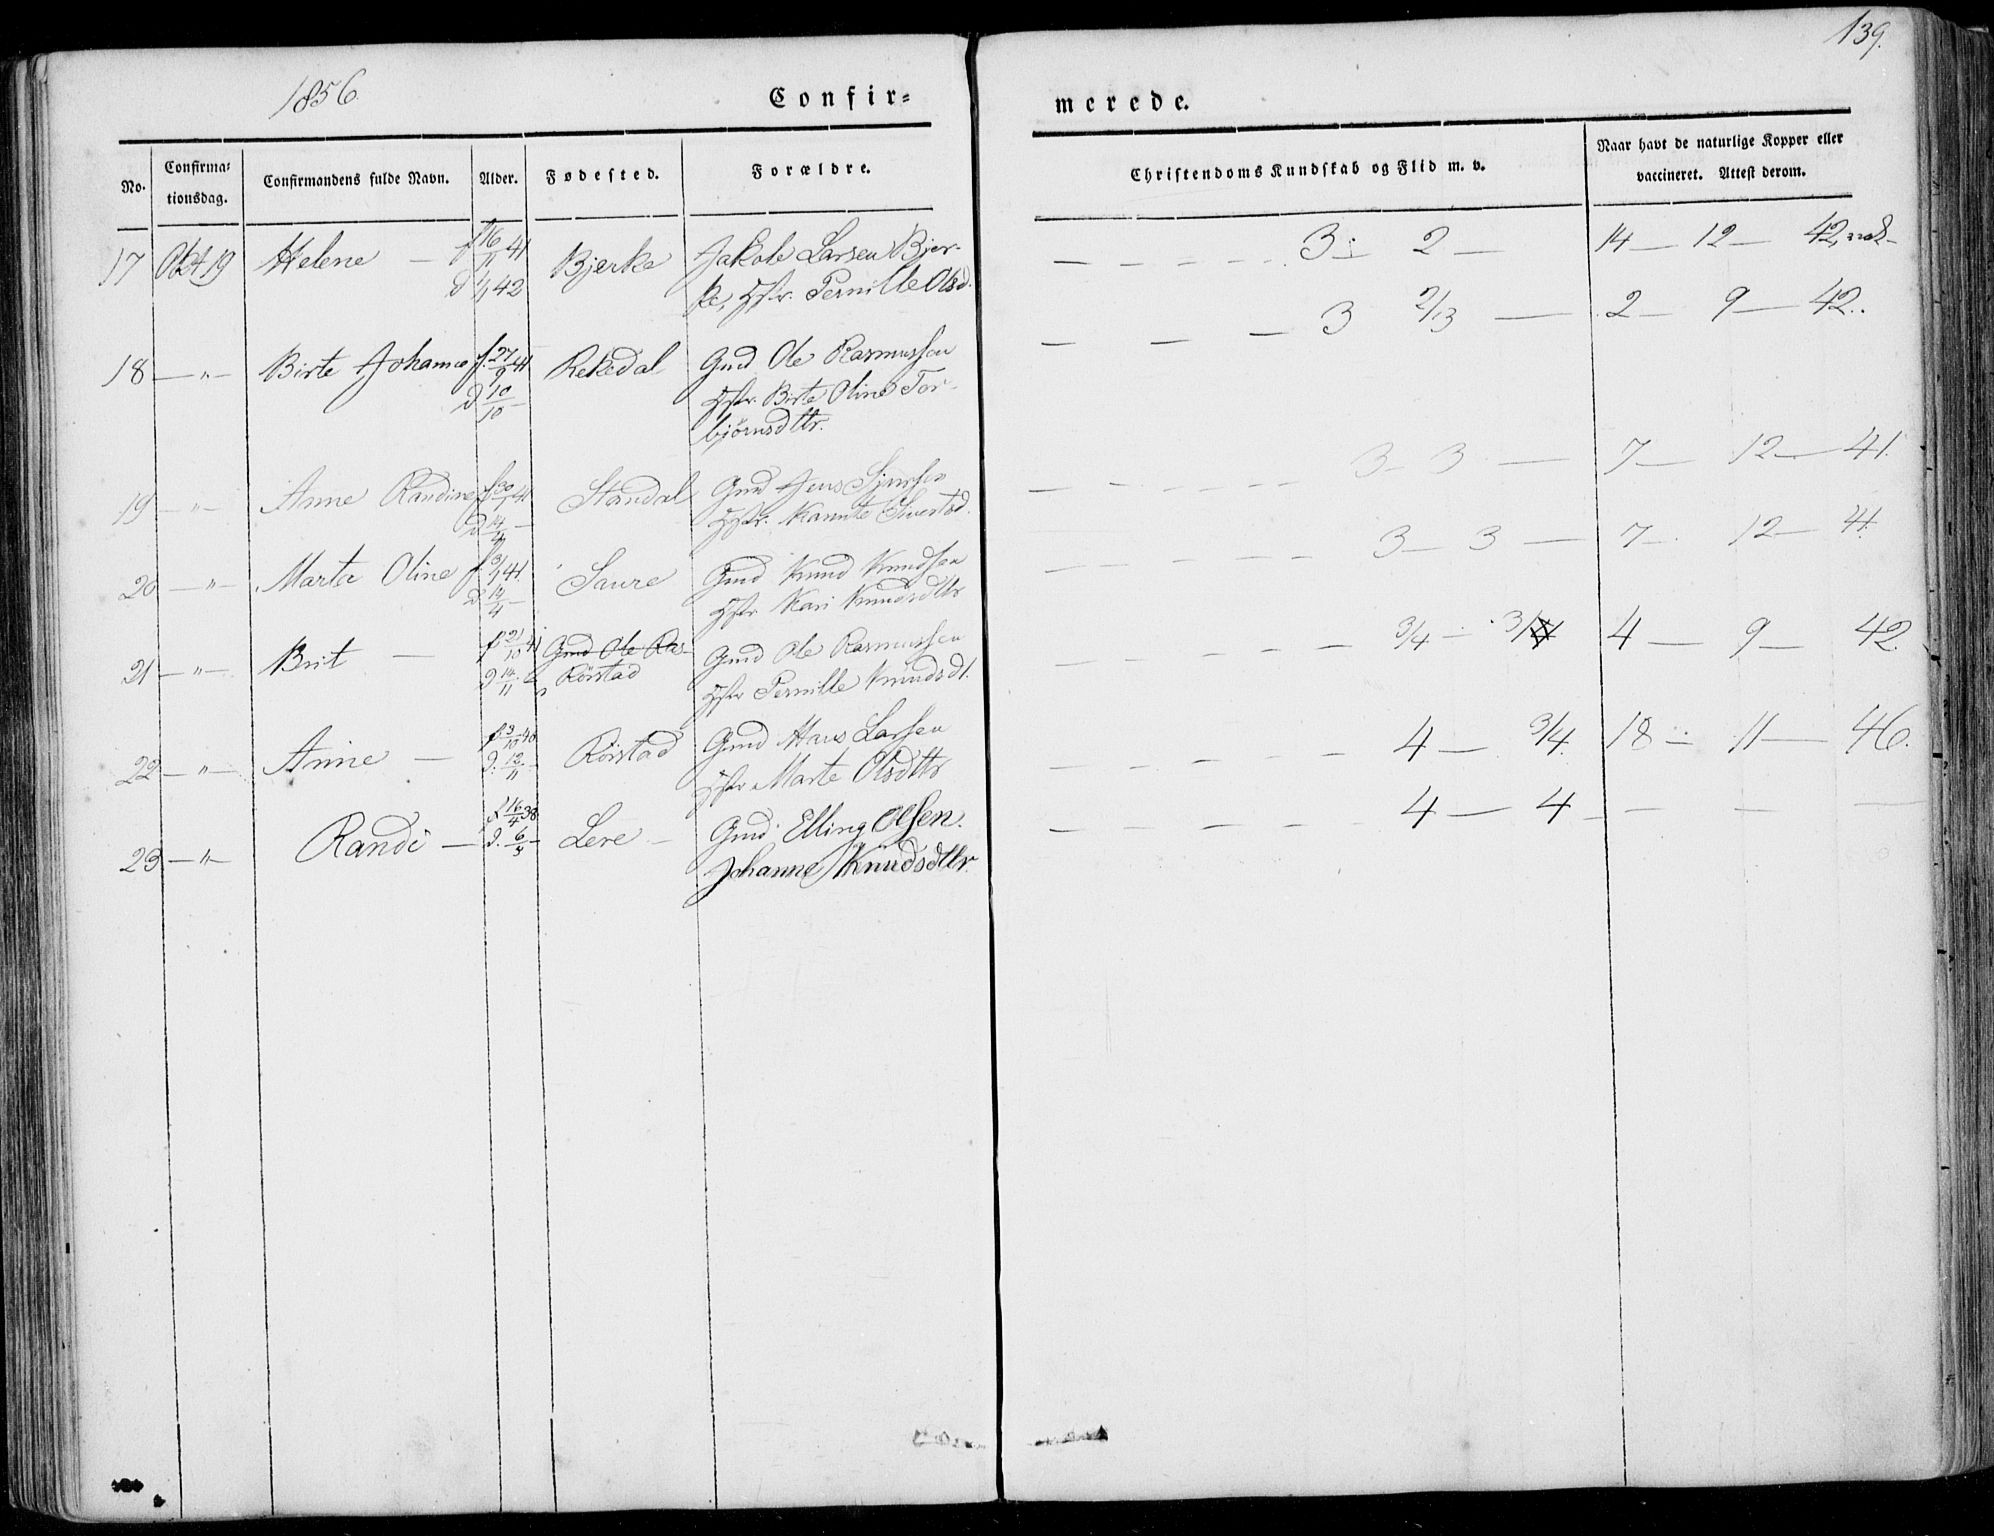 1856
139.
Confir=
merede.
No.
Confirma=
tionsdag.
Confirmandens fulde Navn.
Alder.
Fødested.
Forældre.
Christendoms Kundskab og Flid m. v.
Naar havt de naturlige Kopper eller
vaccineret. Attest derom.
17 Oct 19 Helene — f 16/11 41 Bjerke Jakob Larsen Bjer-
d 1/1 42 ke, Hstr. Pernille Olsd.
3 2 — 14 — 12 — 42
18 — " — Birte Johanne f. 27/9 41 Rekedal Gmd Ole Rasmussen
D 10/10 — Hstr. Birte Oline Tor-
bjørnsdttr.
3 2/3 — 2 — 9 — 42.
19 — " — Anne Randine f 30/1 41 Standal Gmd Jens
D 14/4 — Hstr.
3 — 3 — 7 — 12 — 41.
20 — " — Marte Oline f 3/1 41. Saure Gmd Knud Knudsen
D 14/4 — Hstr. Kari Knudsdttr
3 — 3 — 7 — 12 — 41.
21 — " — Brit — f 21/10 41 Gmd Ole Ras- Gmd Ole Rasmussen
D 14/11 Rörstad Hstr Pernille Knudsdt.
3/4 — 4 — 9 — 42.
22 — " — Anne — f 3/10 40 Rörstad Gmd Hans Larsen
D. 13/11 — Hstr Marte Olsdttr
4 — 3/4. 18 — 11 — 46.
23 — " — Randi — f 16/4 38 Lere — Gmd. Elling Olsen.
D. 6/5 — Johanne Knudsdttr.
4 — 4 — — —